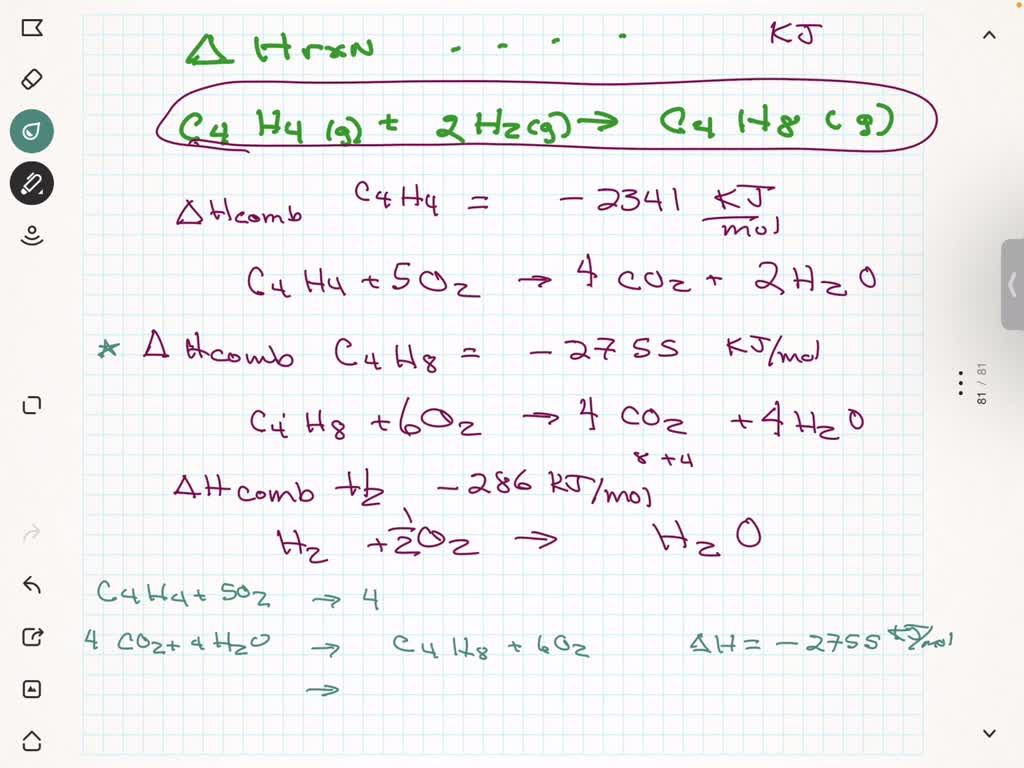 Δ Hrxn . . . . KJ
C4 H4 (g) + 2 H2 (g) → C4 H8 (g)
ΔHcomb C4H4 = - 2341 KJ/mol
C4 H4 + 5O2 → 4 CO2 + 2H2O
* Δ Hcomb C4 H8 = - 2755 KJ/mol
C4 H8 + 6O2 → 4 CO2 + 4H2O
8 + 4
ΔHcomb H2 - 286 KJ/mol
H2 + 1/2 O2 → H2O
C4H4 + 5O2 → 4
4 CO2 + 4H2O → C4 H8 + 6O2 ΔH = - 2755 KJ/mol
→
81 / 81